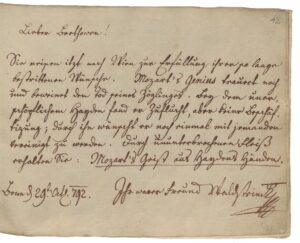 Lieber Beethowen!
Sie reisen itzt nach Wien zur Erfüllung ihrer so lange
bestrittenen Wünsche. Mozart's Genius trauert noch
und beweinet den Tod seines Zöglinges. Bey dem uner-
schöpflichem Hayden fand er Zuflucht, aber keine Beschäf-
tigung; durch ihn wünscht er noch einmal mit jemanden
vereinigt zu werden. Durch ununterbrochenen Fleiß
erhalten Sie: Mozart's Geist aus Haydens Händen.
Bonn d 29t Oct. 792.
Ihr warer Freund Waldstein